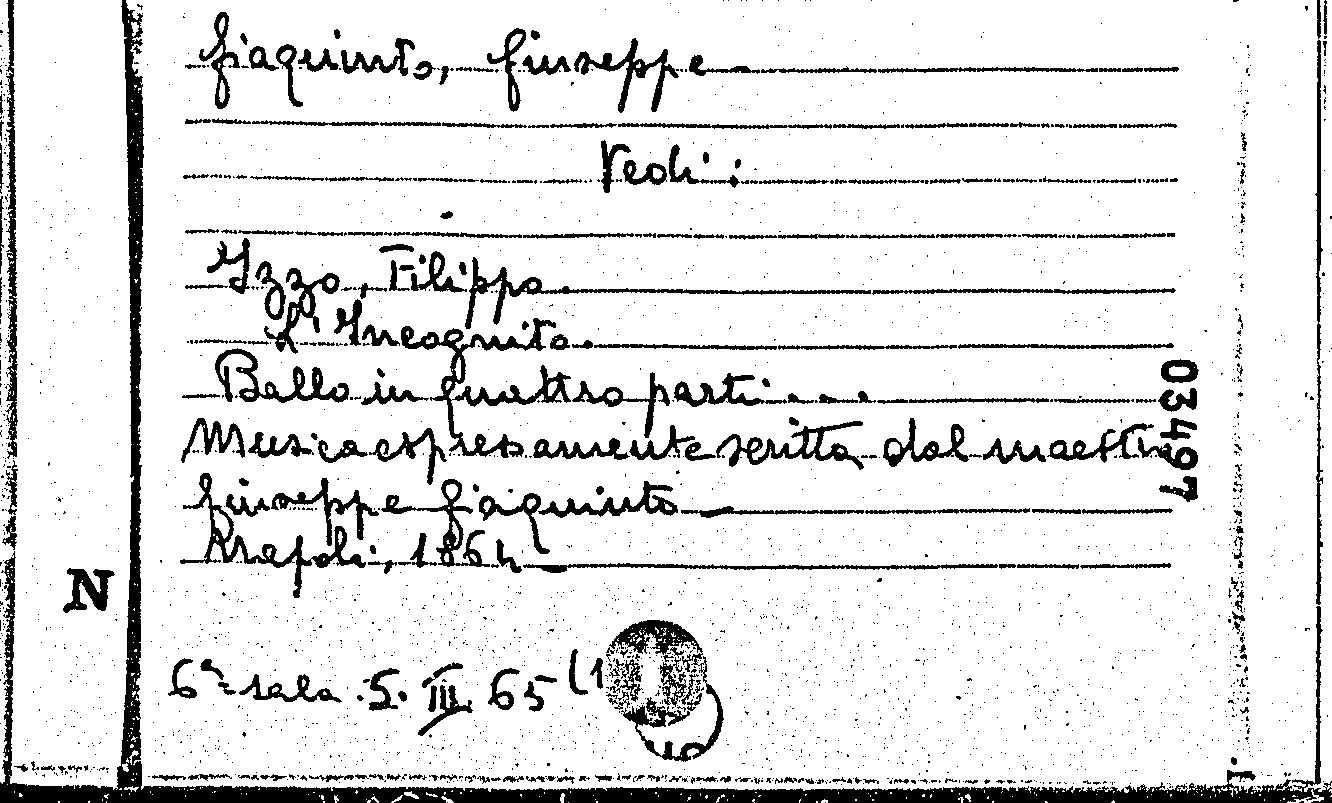 Giaquinto, Giuseppe -
Vedi:
Izzo, Filippo.
L'Incognito.
Ballo in quattro parti...
Musica espressamente scritta dal maestro
Giuseppe Giaquinto -
Napoli, 1864 -
6ª sala .5. III. 65 (1
03497
N